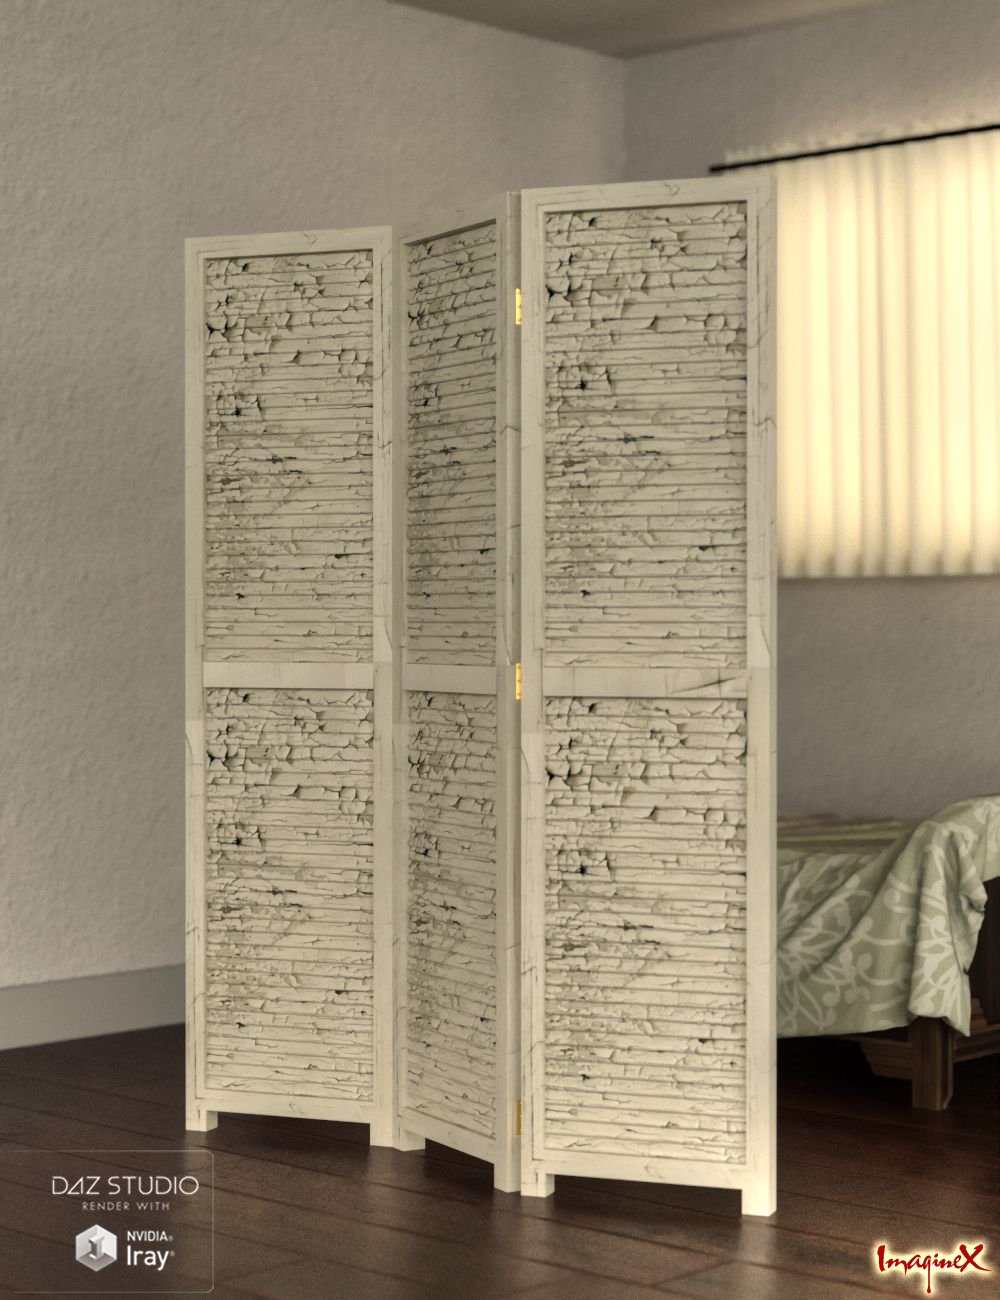 DAZ STUDIO
RENDER WITH
NVIDIA®
Iray®
ImagineX